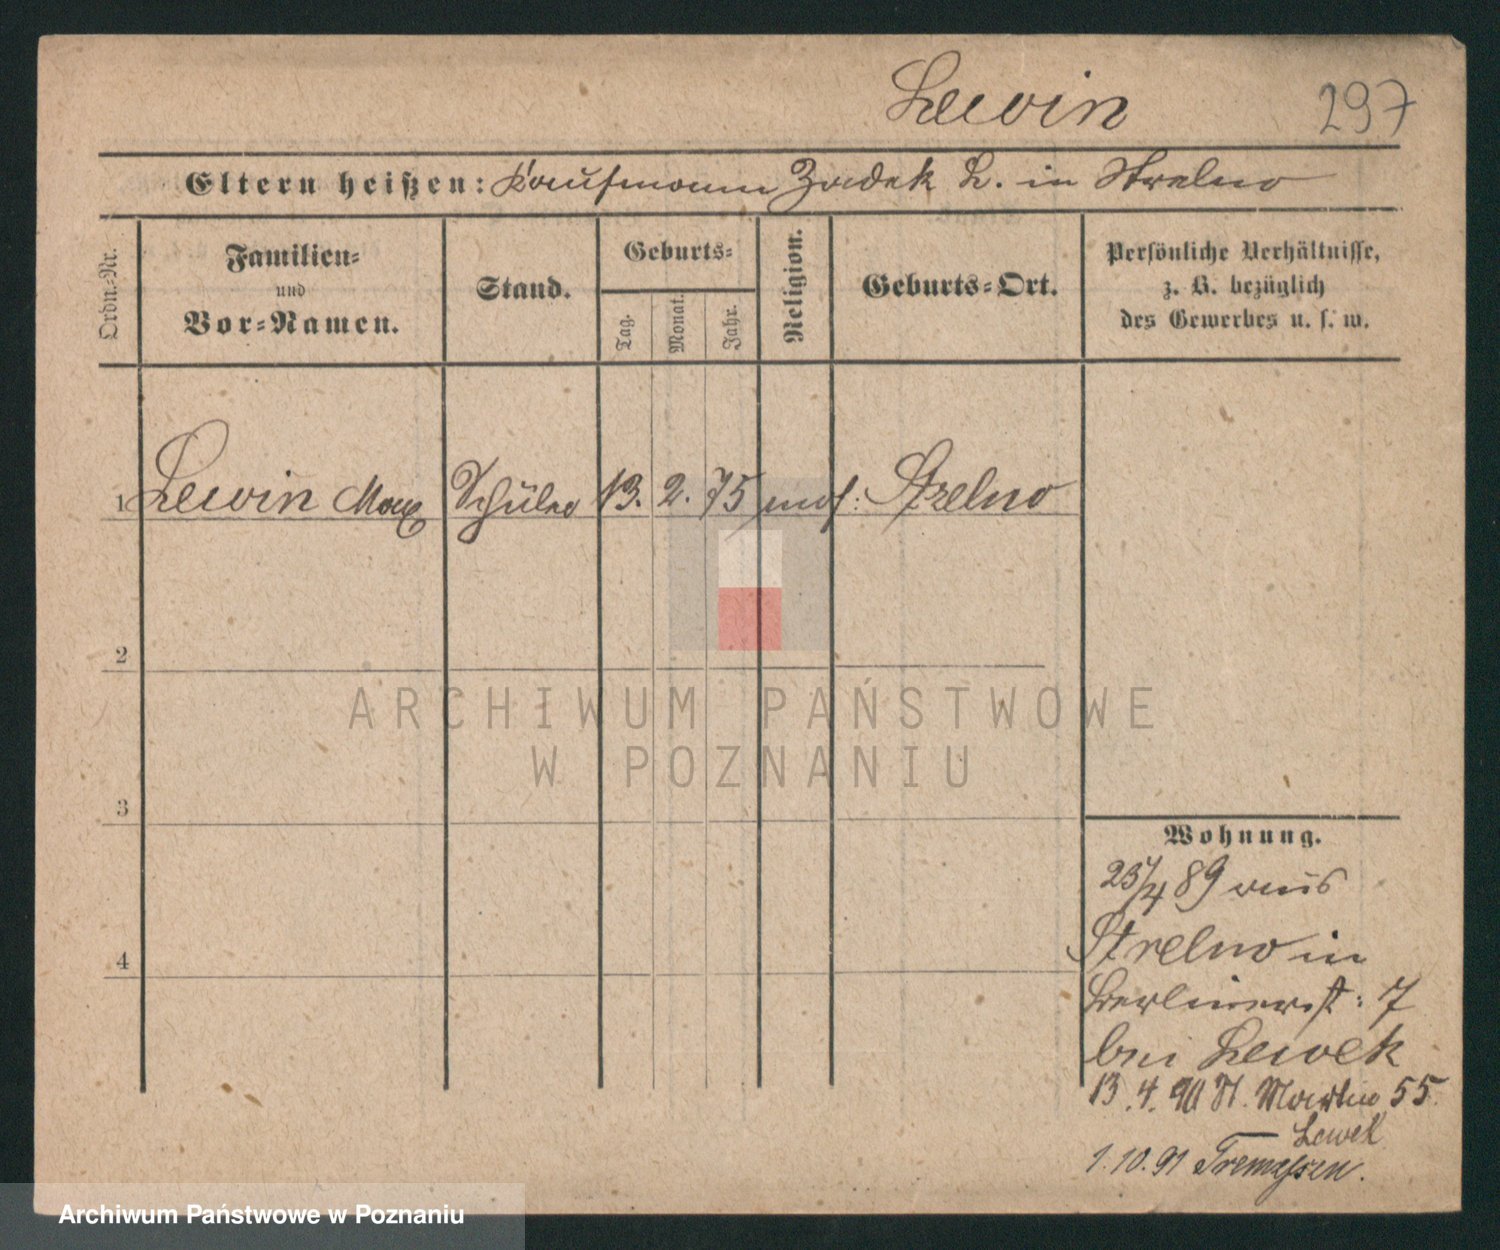 Lewin 297
Eltern heißen: Kaufmann Zadek L. in Strelno
Ordn.-Nr.
Familien-
und
Vor-Namen.
Stand.
Geburts-
Tag.
Monat.
Jahr.
Religion.
Geburts-Ort.
Persönliche Verhältnisse,
z. B. bezüglich
des Gewerbes u. s. w.
1 Lewin Max Schüler 13. 2. 75 mos: Strelno
2
ARCHIWUM PAŃSTWOWE
W POZNANIU
3
Wohnung.
23/4 89 aus
Strelno in
Berlinerst: 7
bei Lewek
4
13.4.90 St. Martin 55
Lewek
1.10.91 Tremessen.
Archiwum Państwowe w Poznaniu